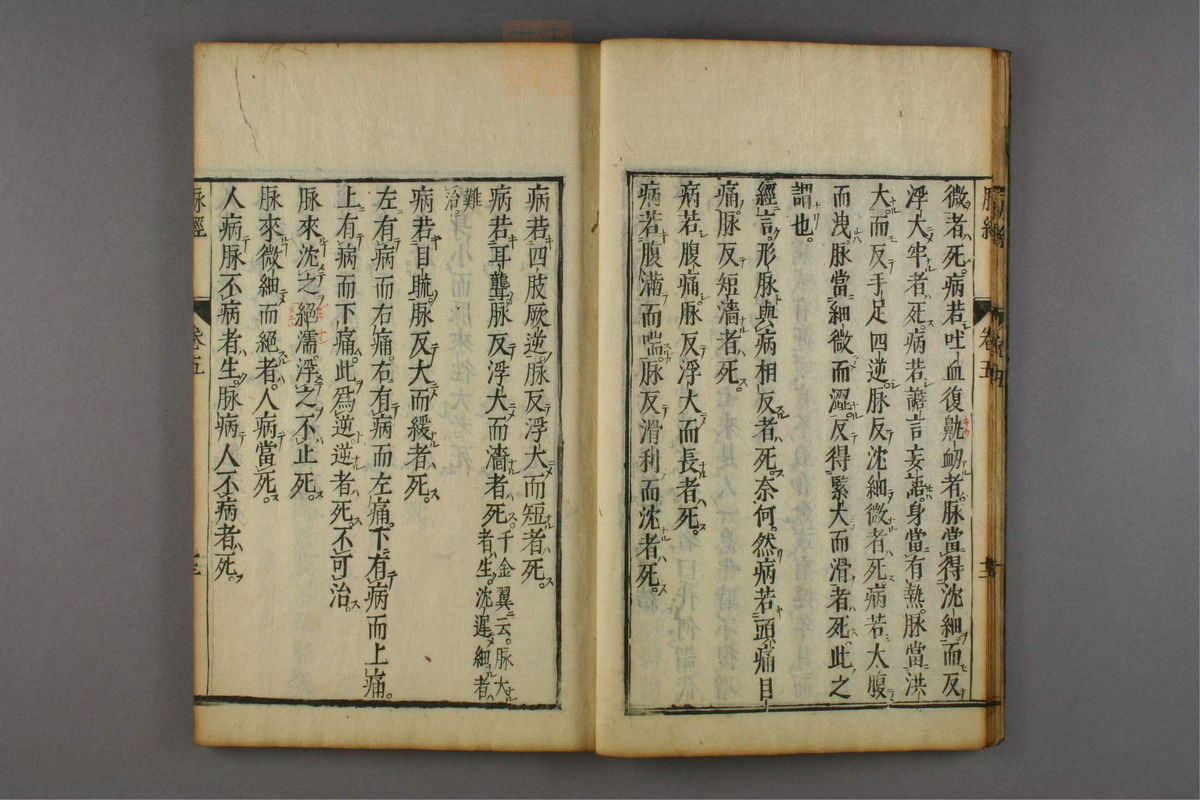 微者死。病若吐血復鼽衂者脉當得沈細而反
浮大牢者死。病若譫言妄語。身當有熱。脉當洪
大而反手足四逆。脉反沈細微者死。病若大腹
而洩。脉當細微而濇。反得緊大而滑者死。此之
謂也。
經言。形脉與病相反者死。奈何。然病若頭痛目
痛。脉反短濇者死。
病若腹痛脉反浮大而長者死。
病若腹滿而喘。脉反滑利而沈者死。
病若四肢厥逆。脉反浮大而短者死。
病若耳聾脉反浮大而濇者死。千金翼云。脉大者生。沈遲細者難治。
病若目䀮。脉反大而緩者死。
左有病而右痛。右有病而左痛。下有病而上痛。
上有病而下痛。此爲逆。逆者死。不可治。
脉來沈之絕濡。浮之不止死。
脉來微細而絕者。人病當死。
人病脉不病者生。脉病人不病者死。
脉經
卷五